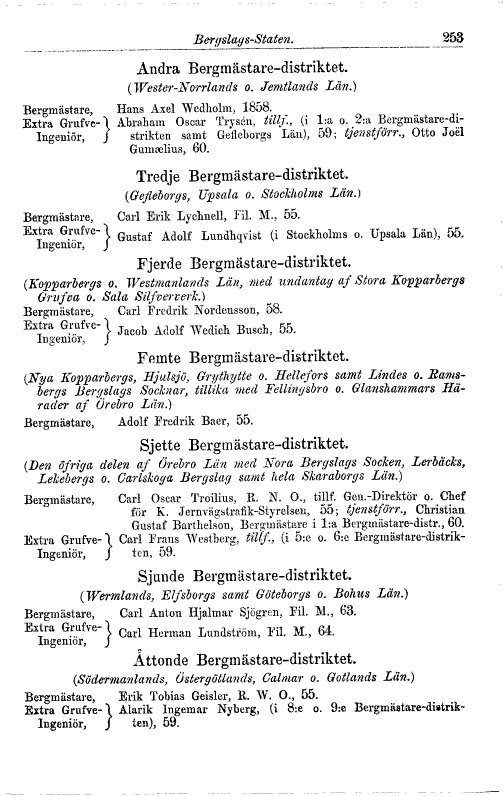 Bergslags-Staten. 253
Andra Bergmästare-distriktet.
(Wester-Norrlands o. Jemtlands Län.)
Bergmästare, Hans Axel Wedholm, 1858.
Extra Grufve- } Abraham Oscar Trysén, tillf., (i 1:a o. 2:a Bergmästare-di-
Ingeniör, strikten samt Gefleborgs Län), 59; tjenstförr., Otto Joël
Gumælius, 60.
Tredje Bergmästare-distriktet.
(Gefleborgs, Upsala o. Stockholms Län.)
Bergmästare, Carl Erik Lychnell, Fil. M., 55.
Extra Grufve- }
Ingeniör, Gustaf Adolf Lundhqvist (i Stockholms o. Upsala Län), 55.
Fjerde Bergmästare-distriktet.
(Kopparbergs o. Westmanlands Län, med undantag af Stora Kopparbergs
Grufva o. Sala Silfververk.)
Bergmästare, Carl Fredrik Nordensson, 58.
Extra Grufve- }
Ingeniör, Jacob Adolf Wedich Busch, 55.
Femte Bergmästare-distriktet.
(Nya Kopparbergs, Hjulsjö, Grythytte o. Hellefors samt Lindes o. Rams-
bergs Bergslags Socknar, tillika med Fellingsbro o. Glanshammars Hä-
rader af Örebro Län.)
Bergmästare, Adolf Fredrik Baer, 55.
Sjette Bergmästare-distriktet.
(Den öfriga delen af Örebro Län med Nora Bergslags Socken, Lerbäcks,
Lekebergs o. Carlskoga Bergslag samt hela Skaraborgs Län.)
Bergmästare, Carl Oscar Troilius, R. N. O., tillf. Gen.-Direktör o. Chef
för K. Jernvägstrafik-Styrelsen, 55; tjenstförr., Christian
Gustaf Barthelson, Bergmästare i 1:a Bergmästare-distr., 60.
Extra Grufve- } Carl Frans Westberg, tillf., (i 5:e o. 6:e Bergmästare-distrik-
Ingeniör, ten, 59.
Sjunde Bergmästare-distriktet.
(Wermlands, Elfsborgs samt Göteborgs o. Bohus Län.)
Bergmästare, Carl Anton Hjalmar Sjögren, Fil. M., 63.
Extra Grufve- }
Ingeniör, Carl Herman Lundström, Fil. M., 64.
Åttonde Bergmästare-distriktet.
(Södermanlands, Östergötlands, Calmar o. Gotlands Län.)
Bergmästare, Erik Tobias Geisler, R. W. O., 55.
Extra Grufve- } Alarik Ingemar Nyberg, (i 8:e o. 9:e Bergmästare-distrik-
Ingeniör, ten), 59.